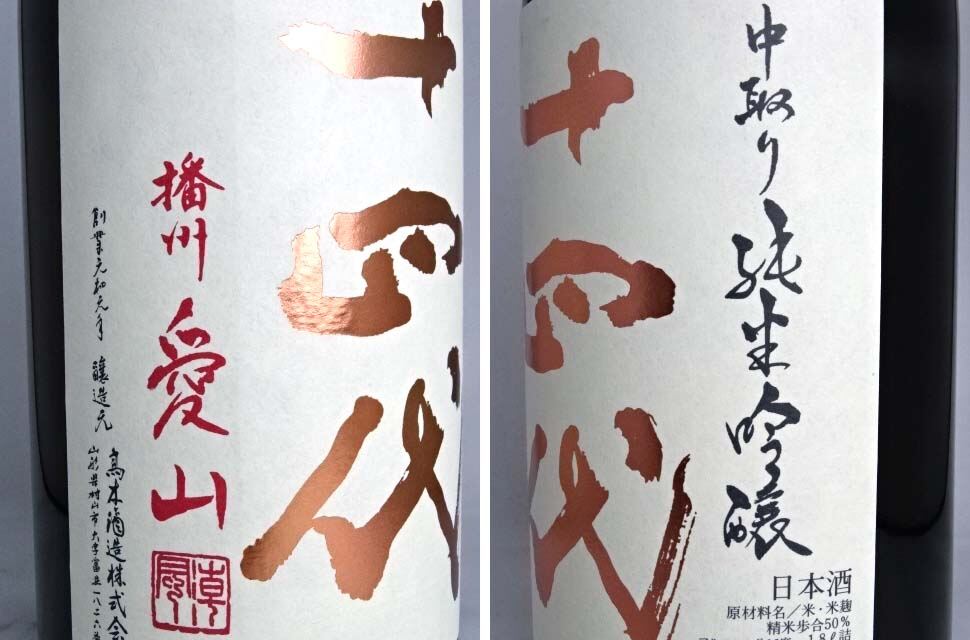 十四代
播州 愛山
創業元和元年 醸造元
高木酒造株式会
山形県村山市大字富並一八二六
中取り 純米吟醸
十四代
日本酒
原材料名/米・米麹
精米歩合50%